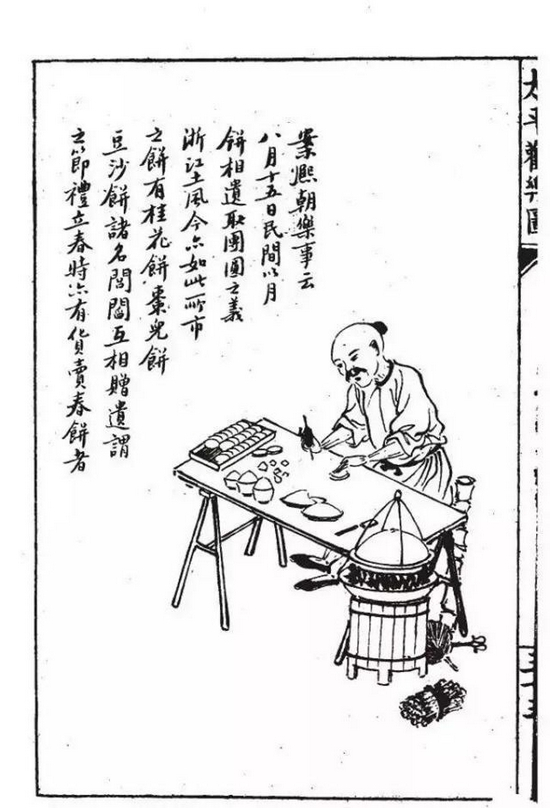 太平歡樂圖
案熙朝樂事云
八月十五日民間以月
餅相遺取團圓之義
浙江土風今亦如此所市
之餅有桂花餅棗兒餅
豆沙餅諸名閭閻互相贈遺謂
之節禮立春時亦有貨賣春餅者